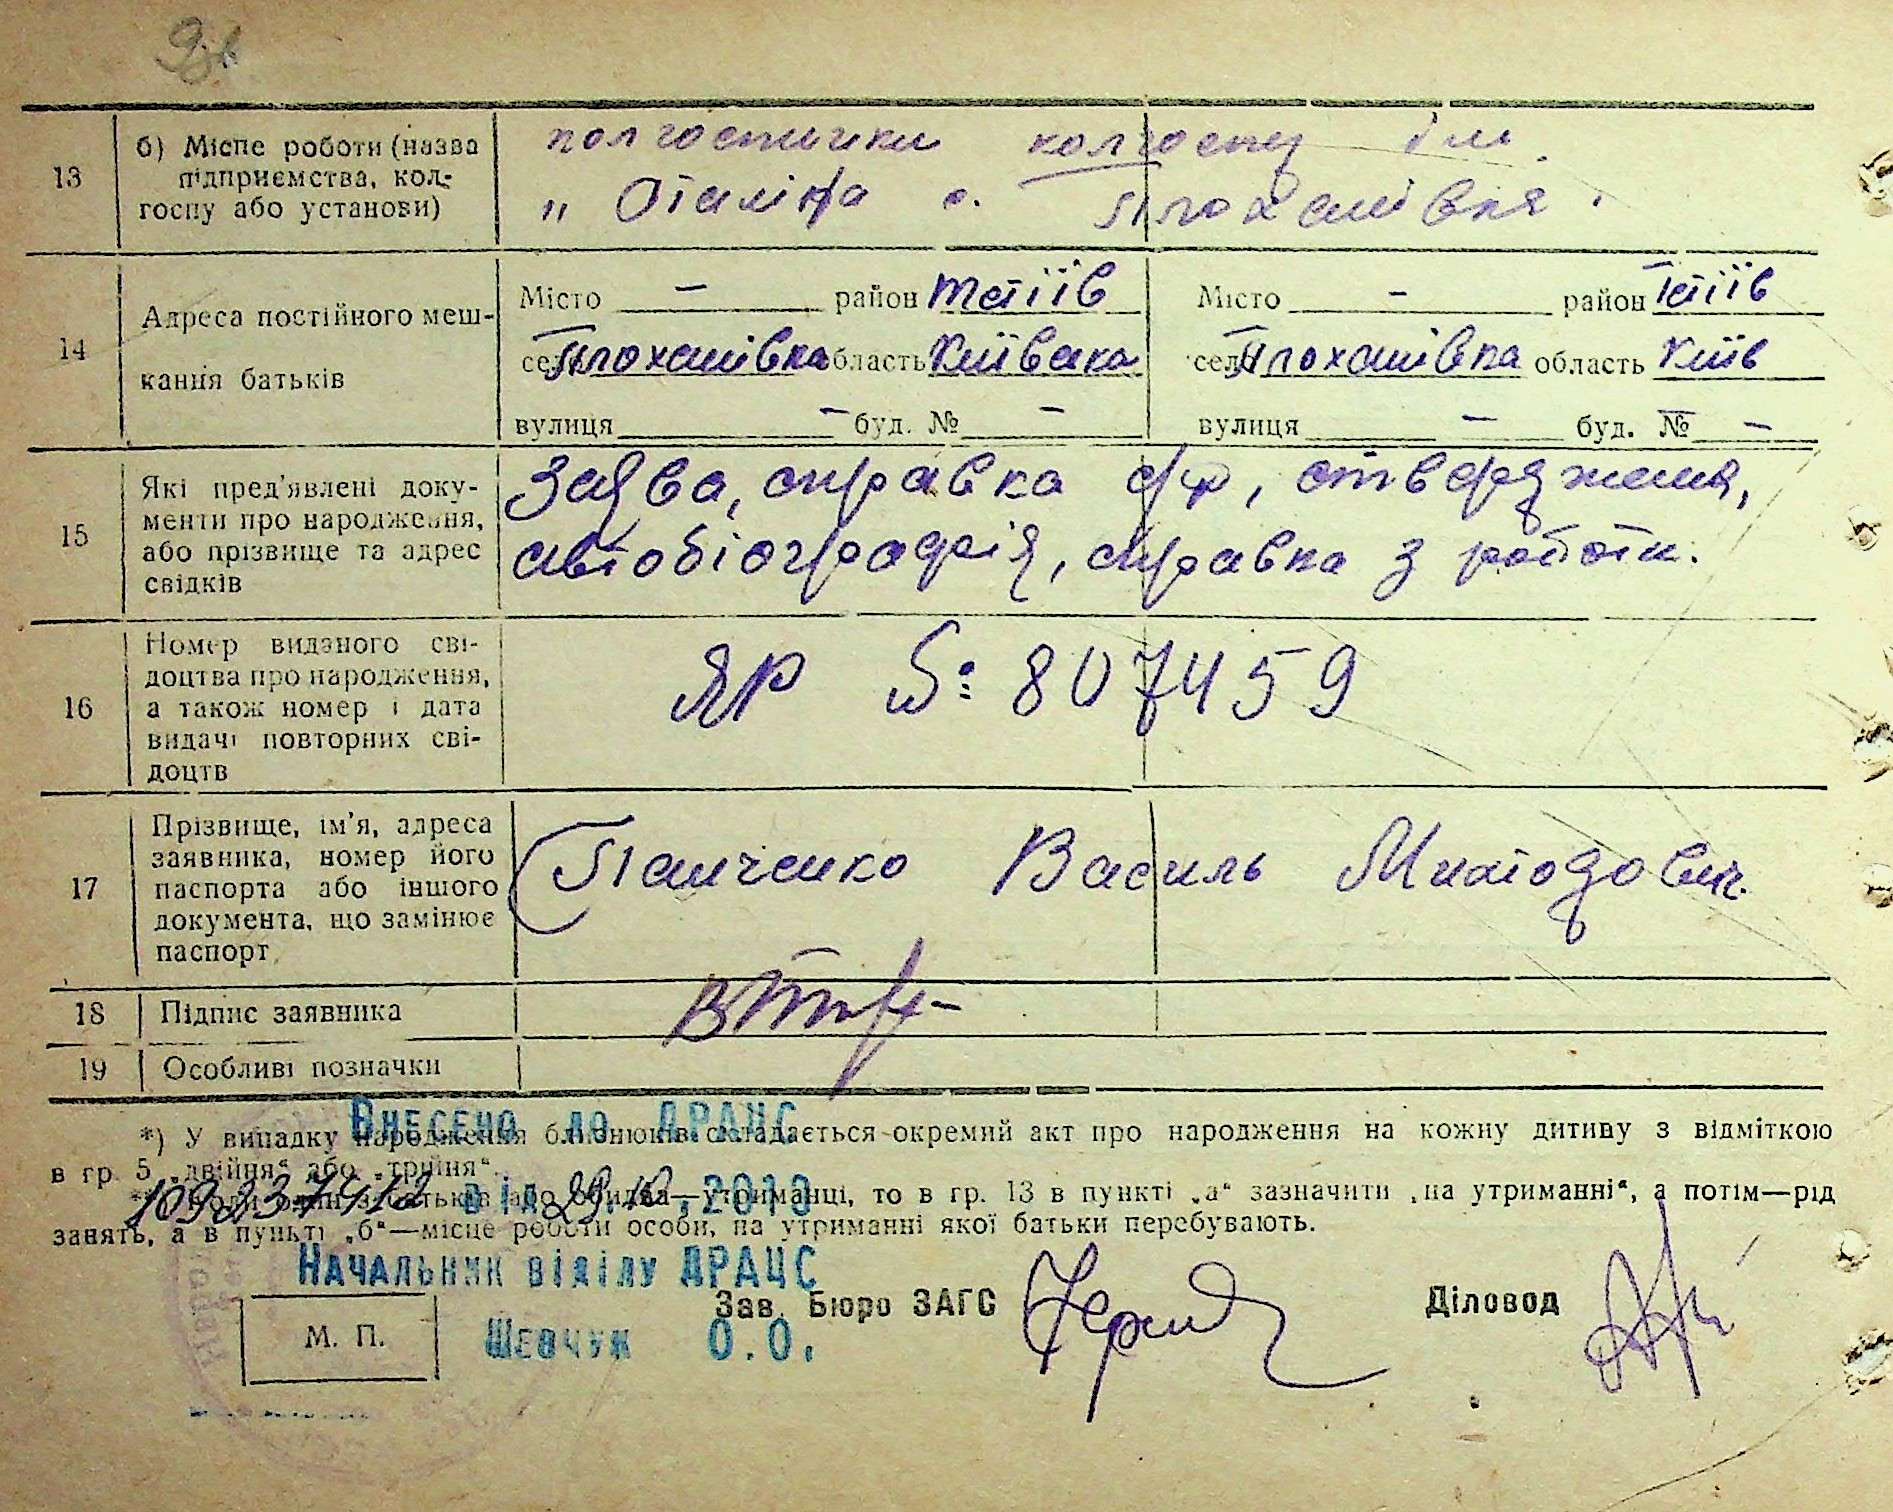 13
б) Місце роботи (назва підприємства, колгоспу або установи)
колгоспники колгоспу ім.
„ Сталіна с. Плоханівка.
14
Адреса постійного мешкання батьків
Місто — район Тетіїв
село Плоханівка область Київська
вулиця — буд. № —
Місто — район Тетіїв
село Плоханівка область Київ
вулиця — буд. № —
15
Які пред'явлені документи про народження, або прізвище та адрес свідків
Заява, справка ф, ствердження,
автобіографія, справка з роботи.
16
Номер виданого свідоцтва про народження, а також номер і дата видачі повторних свідоцтв
ЯР №: 807459
17
Прізвище, ім'я, адреса заявника, номер його паспорта або іншого документа, що замінює паспорт
Панченко Василь Митодович.
18
Підпис заявника
19
Особливі позначки
Внесено до ДРАЦС
*) У випадку народження близнюків складається окремий акт про народження на кожну дитину з відміткою
в гр. 5 „двійня“ або „трійня“.
батьків або обидва—утриманці, то в гр. 13 в пункті „а“ зазначити „на утриманні“, а потім—рід
занять, а в пункті „б“—місце роботи особи, на утриманні якої батьки перебувають.
від
Начальник відділу ДРАЦС
Зав. Бюро ЗАГС
Діловод
М. П.
Шевчук О.О.